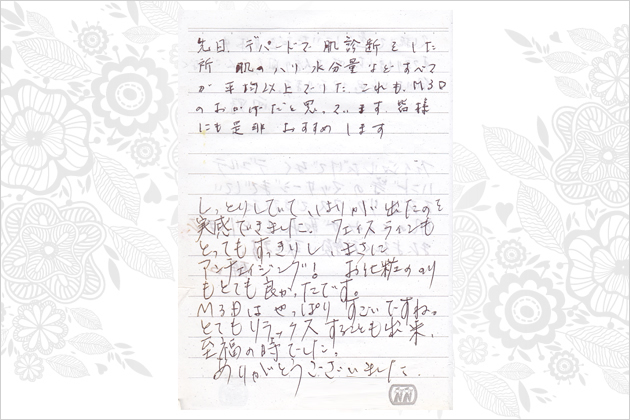 先日、デパートで肌診断をした
所 肌のハリ、水分量などすべて
が平均以上でした これも、M3D
のおかげだと思っています 皆様
にも是非おすすめします
しっとりしていて、はりが出たのを
実感できました。フェイスラインも
とってもすっきりし、まさに
アンチエイジング! お化粧ののり
もとても良かったです。
M3Dはやっぱりすごいですね。
とてもリラックスすることも出来、
至福の時でした。
ありがとうございました。
NN